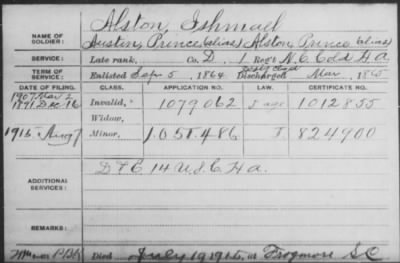 Alston, Ishmael
NAME OF SOLDIER: Austin, Prince (alias) Alston, Prince (alias)
SERVICE: Late rank, Co. D, 1 Reg't N.C. Cold H A
TERM OF SERVICE: Enlisted Sep 5, 1864 Discharged Mar, 1865
DATE OF FILING. CLASS. APPLICATION NO. LAW. CERTIFICATE NO.
1907 Mar 2
1891 Dec 16 Invalid, 1079062 1012855
Widow,
1915 Aug 7 Minor, 1.051.486 824900
D & E 14 U.S.C. H A.
ADDITIONAL SERVICES:
REMARKS:
Died July 19 1915, at Frogmore SC